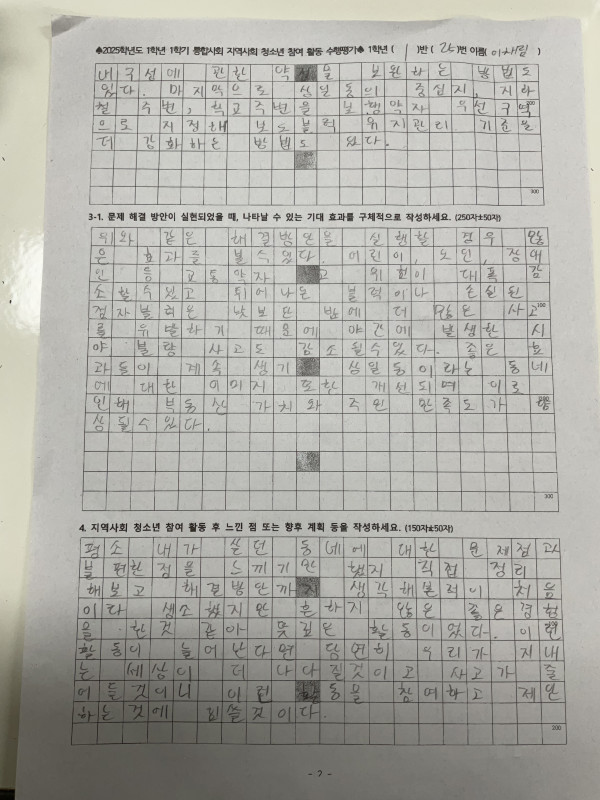 ♠2025학년도 1학년 1학기 통합사회 지역사회 청소년 참여 활동 수행평가♠ 1학년 ( 1 )반 ( 21 )번 이름( )
내 구성에 관한 약점을 보완하는 방법도
있다. 마지막으로 상일동의 중심지, 지하
철 주변, 학교 주변을 보행약자 우선 구역
으로 지정해 보도블럭 유지관리 기준을
더 강화하는 방법도 있다.
300
3-1. 문제 해결 방안이 실현되었을 때, 나타날 수 있는 기대 효과를 구체적으로 작성하세요. (250자±50자)
위와 같은 해결방안을 실행할 경우 많
은 효과를 볼수있다. 어린이, 노인, 장애
인 등 교통약자 사고 위험이 대폭 감
소할수 있고 튀어나온 블럭이나 손실된
점자블럭은 낮보단 밤에 더 많은 사고
를 유발하기 때문에 야간에 발생한 시
야 불량 사고도 감소될수있다. 좋은 효
과들이 계속 생기 상일동이라는 동네
에 대한 이미지 또한 개선되며 이로
인해 부동산 가치와 주민 만족도가 향
상 될수 있다.
300
4. 지역사회 청소년 참여 활동 후 느낀 점 또는 향후 계획 등을 작성하세요. (150자±50자)
평소 내가 살던 동네에 대한 문제점과
불편한 점을 느끼기만 했지 직접 정리
해보고 해결방안까지 생각해본적이 처음
이다 생소했지만 흔하지 않은 좋은 경험
을 한것 같아 뜻깊은 활동이었다. 이런
활동이 늘어난다면 당연히 우리가 지내
는 세상이 더 나다질것이고 사고가 줄
어들것이니 이런 활동을 참여하고 제안
하는것에 힘쓸것이다.
200
- 2 -